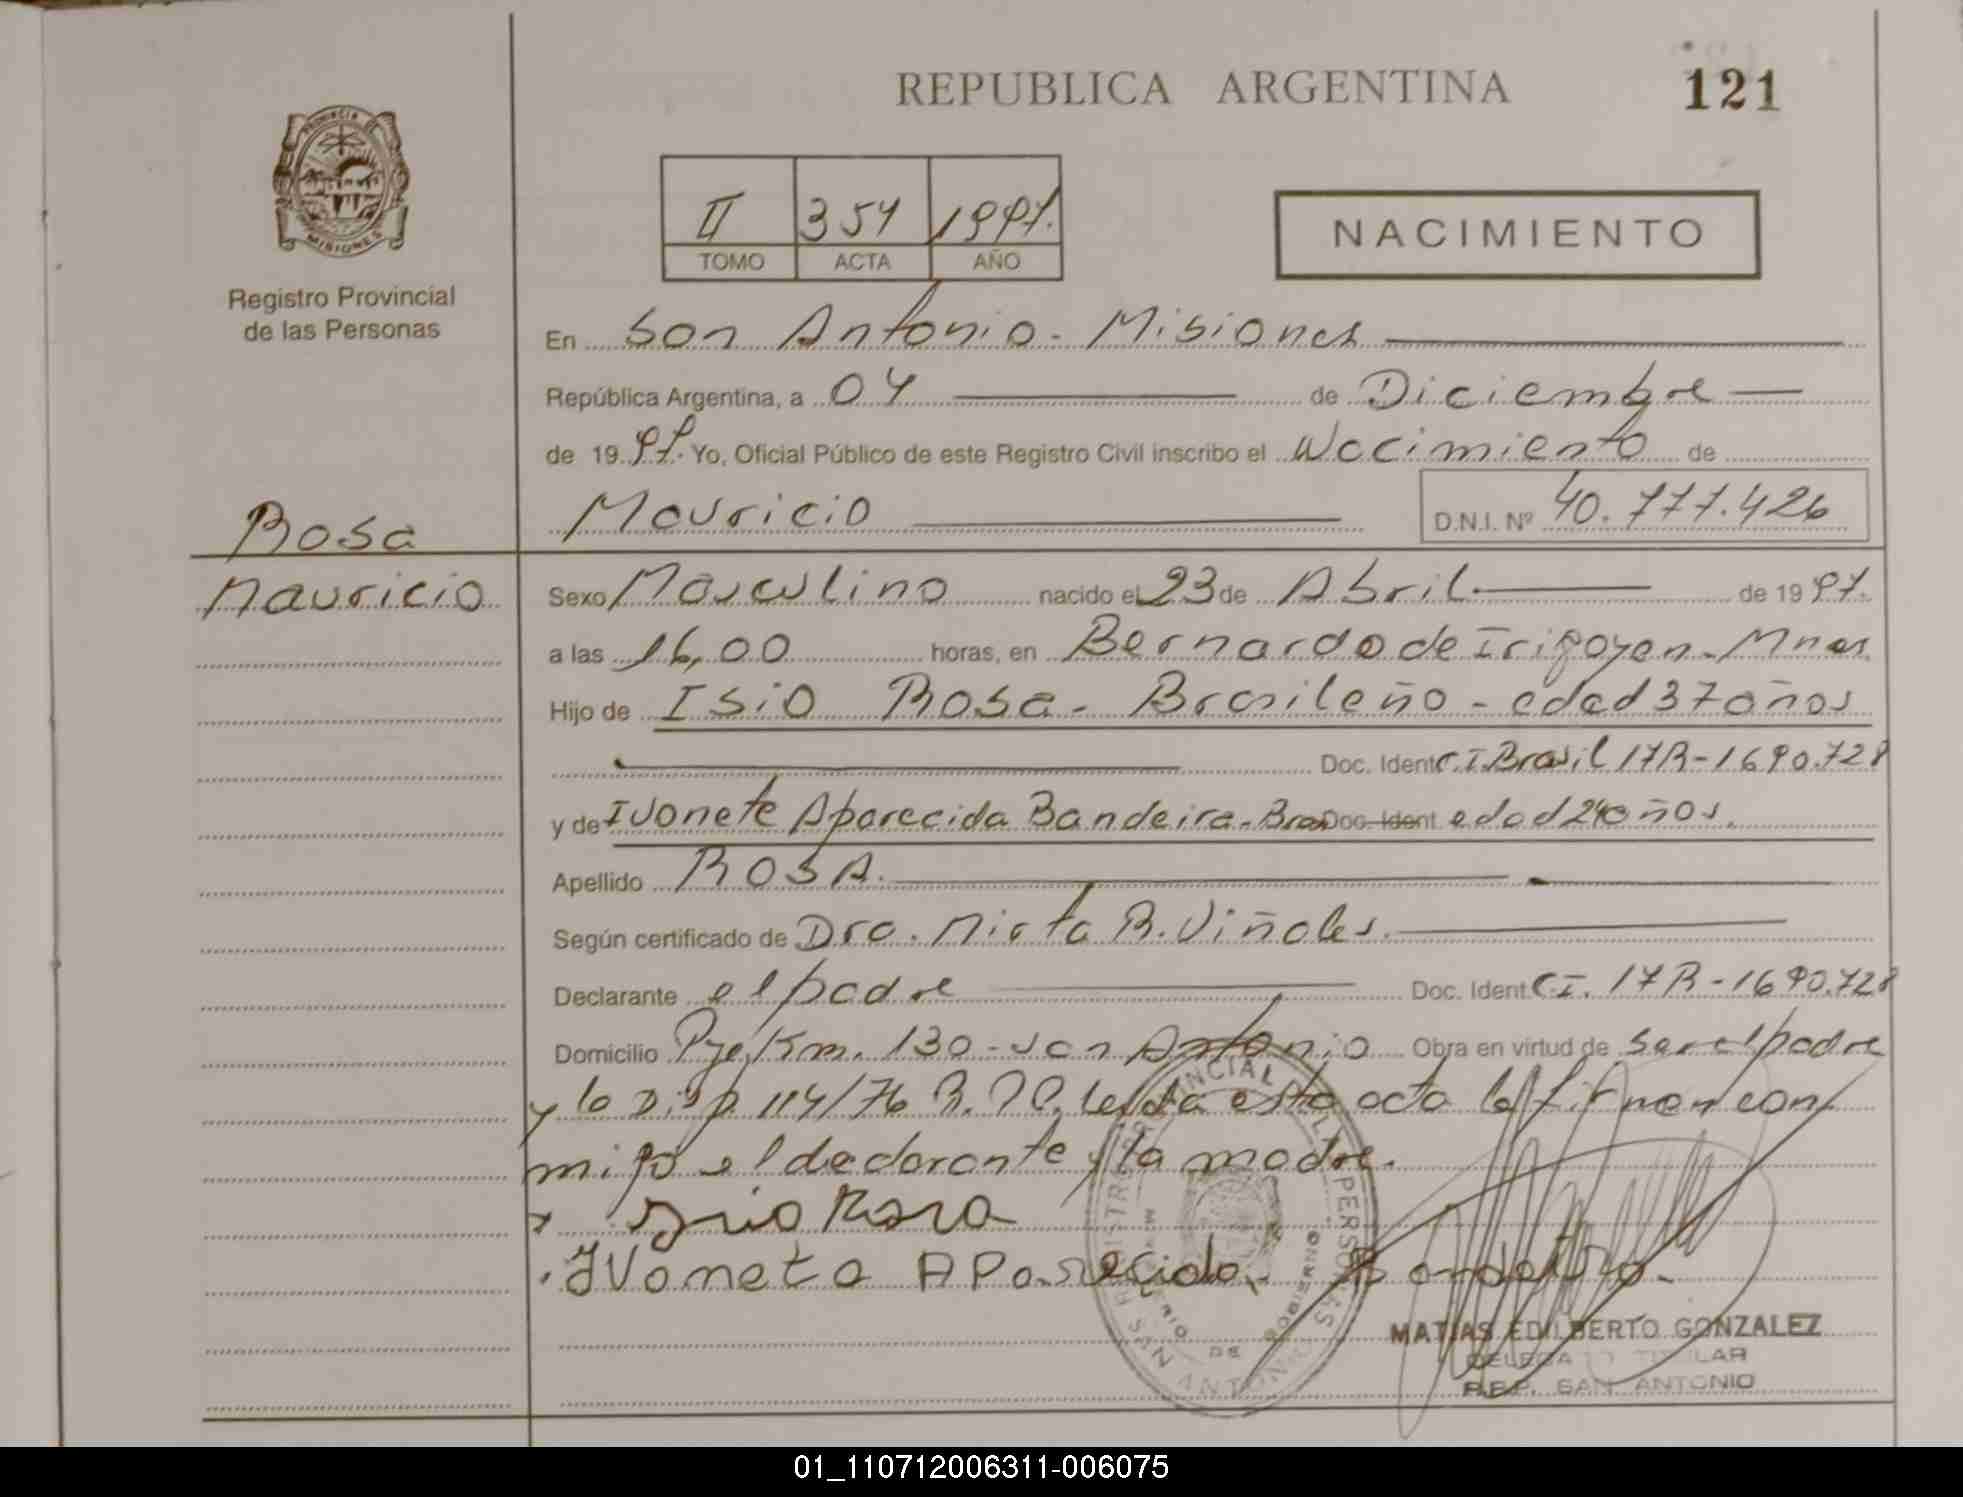 REPUBLICA ARGENTINA
121
PROVINCIA DE
MISIONES
Registro Provincial
de las Personas
II 354 1997.
TOMO ACTA AÑO
NACIMIENTO
En San Antonio - Misiones
República Argentina, a 04 de Diciembre
de 19 97. Yo, Oficial Público de este Registro Civil inscribo el Nacimiento de
Mauricio D.N.I. Nº 40.777.426
Rosa
Mauricio
Sexo Masculino nacido el 23 de Abril de 19 97.
a las 16,00 horas, en Bernardo de Irigoyen - Mnes
Hijo de Isio Rosa - Brasileño - edad 37 años
Doc. Ident C.I. Brasil 17R-1690.728
y de Ivonete Aparecida Bandeira - Bras Doc. Ident edad 24 años.
Apellido ROSA.
Según certificado de Dra. Mirta R. Viñales.
Declarante el padre Doc. Ident C.I. 17R-1690.728
Domicilio Pje. Km. 130 - San Antonio Obra en virtud de ser el padre
y la Disp. 114/76 R.P.P. Leída esta acta la firman con
migo el declarante y la madre.
x Isio Rosa
Ivoneta Aparecida Bandeira
REGISTRO PROVINCIAL DE LAS PERSONAS
MINISTERIO DE GOBIERNO
SAN ANTONIO
MATIAS EDILBERTO GONZALEZ
DELEGADO TITULAR
R.P.P. SAN ANTONIO
01_110712006311-006075